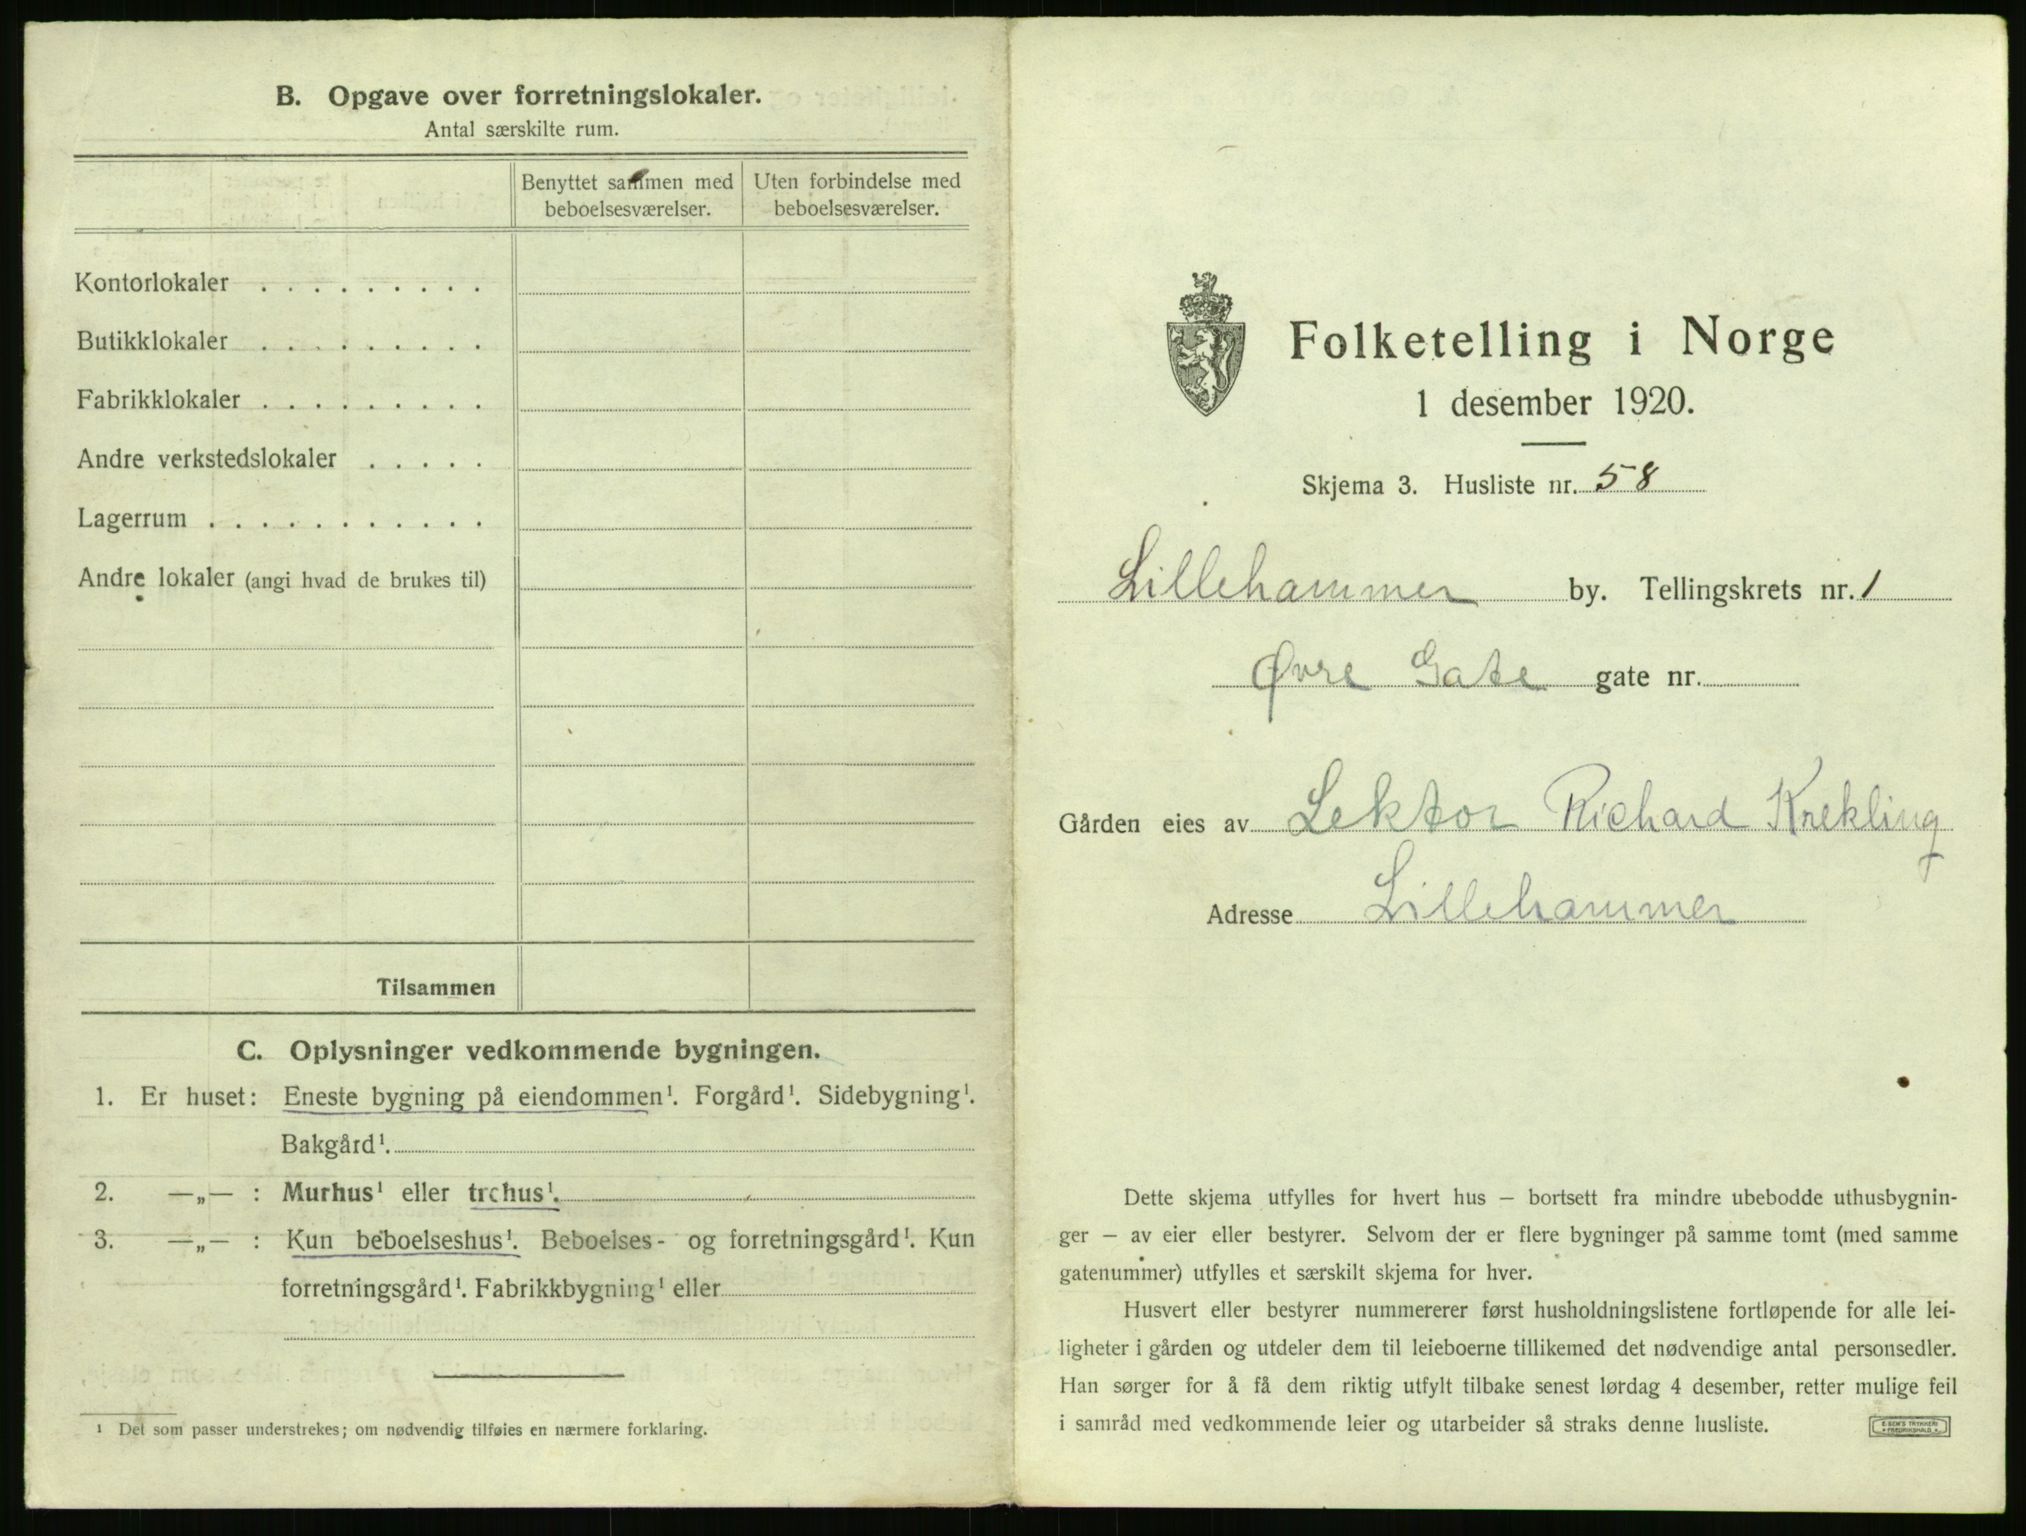 B. Opgave over forretningslokaler.
Antal særskilte rum.
Benyttet sammen med beboelsesværelser.
Uten forbindelse med beboelsesværelser.
Kontorlokaler . . . . . . . . .
Butikklokaler . . . . . . . . .
Fabrikklokaler . . . . . . . . .
Andre verkstedslokaler . . . . .
Lagerrum . . . . . . . . . . .
Andre lokaler (angi hvad de brukes til)
Tilsammen
C. Oplysninger vedkommende bygningen.
1. Er huset: Eneste bygning på eiendommen¹. Forgård¹. Sidebygning¹.
Bakgård¹.
2. —„— : Murhus¹ eller trehus¹.
3. —„— : Kun beboelseshus¹. Beboelses- og forretningsgård¹. Kun
forretningsgård¹. Fabrikkbygning¹ eller
¹ Det som passer understrekes; om nødvendig tilføies en nærmere forklaring.
Folketelling i Norge
1 desember 1920.
Skjema 3. Husliste nr. 58
Lillehammer by. Tellingskrets nr. 1
Øvre Gate gate nr.
Gården eies av Lektor Richard Krekling
Adresse Lillehammer
Dette skjema utfylles for hvert hus — bortsett fra mindre ubebodde uthusbygnin-
ger — av eier eller bestyrer. Selvom der er flere bygninger på samme tomt (med samme
gatenummer) utfylles et særskilt skjema for hver.
Husvert eller bestyrer nummererer først husholdningslistene fortløpende for alle lei-
ligheter i gården og utdeler dem til leieboerne tillikemed det nødvendige antal personsedler.
Han sørger for å få dem riktig utfylt tilbake senest lørdag 4 desember, retter mulige feil
i samråd med vedkommende leier og utarbeider så straks denne husliste.
E. SEM'S TRYKKERI
FREDRIKSHALD